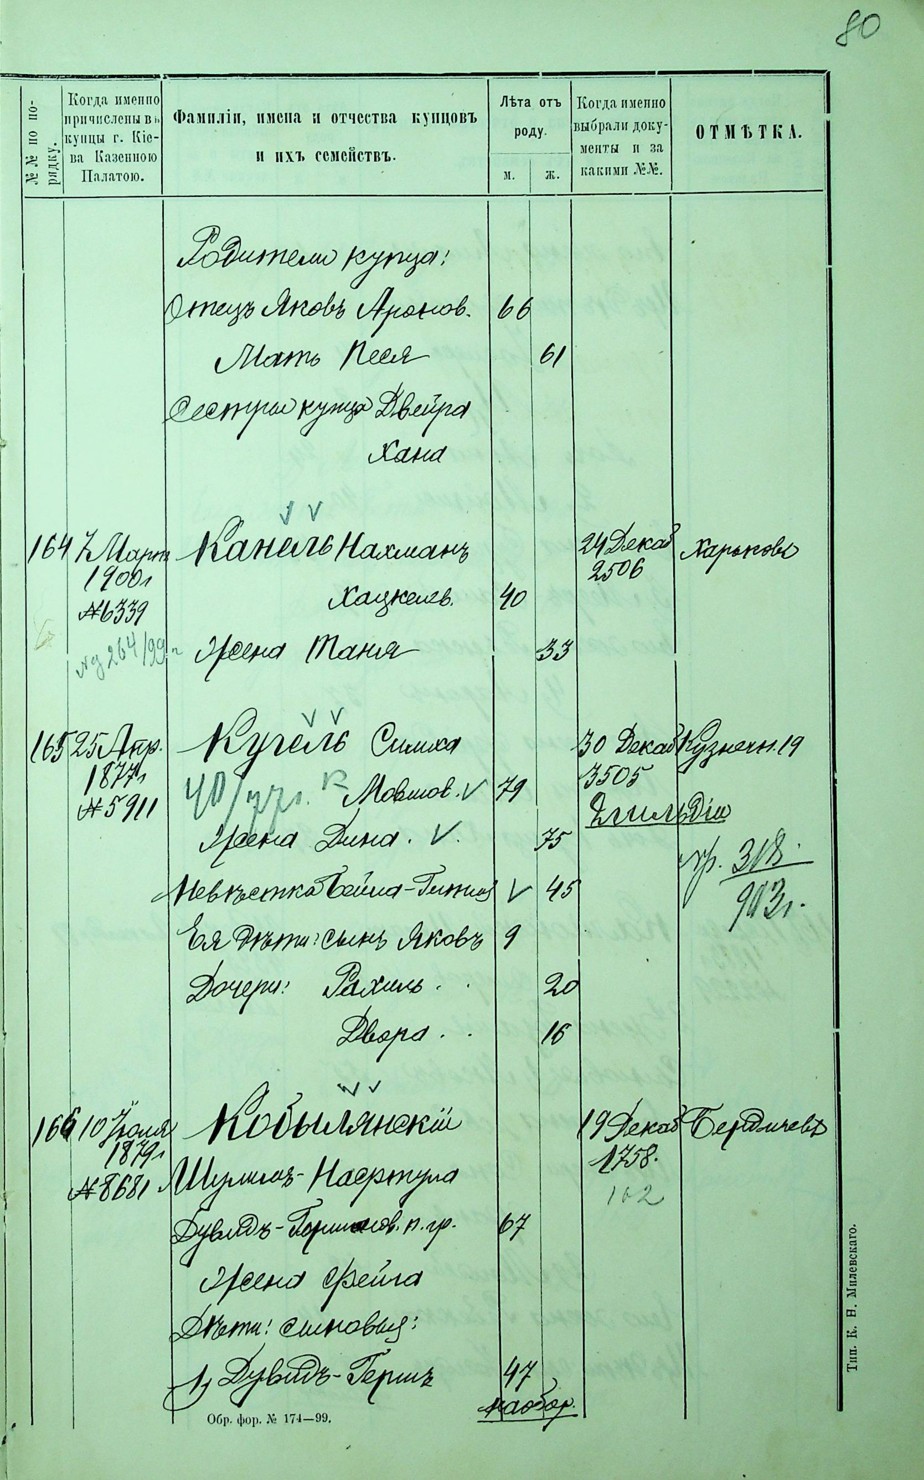 80
№№ по по-
рядку.
Когда именно
причислены въ
купцы г. Кіе-
ва Казенною
Палатою.
Фамиліи, имена и отчества купцовъ
и ихъ семействъ.
Лѣта отъ
роду.
м. ж.
Когда именно
выбрали доку-
менты и за
какими №№.
ОТМѢТКА.
Родители купца:
Отецъ Яковъ Аронов. 66
Мать Песя 61
Сестры купца Двейра
Хана
164 7 Март Канель Нахманъ 24 Декаб Харьковъ
1900г 2506
№6339 Хацкелев. 40
264/99г Жена Таня 33
165 25 Апр. Кугель Симха 30 Декаб Кузнечн. 19
1877г 3505
№5911 40/77г. Мовшов. 79
2 гильдіи
Жена Дина. 75
пр. 318.
903г.
Невѣстка Бейла-Гитля 45
Ея дѣти: сынъ Яковъ 9
Дочери: Рахиль 20
Двора 16
166 10 Іюля Кобылянскій 19 Декаб Бердичевъ
1879г 1758.
№8681 Шулимъ-Насртула
102
Дувидъ-Гершков. п. гр. 67
Жена Фейга
Дѣти: сыновья:
1) Дувидъ-Гершъ 47
наобор.
Обр. фор. № 174—99.
Тип. К. Н. Милевскаго.